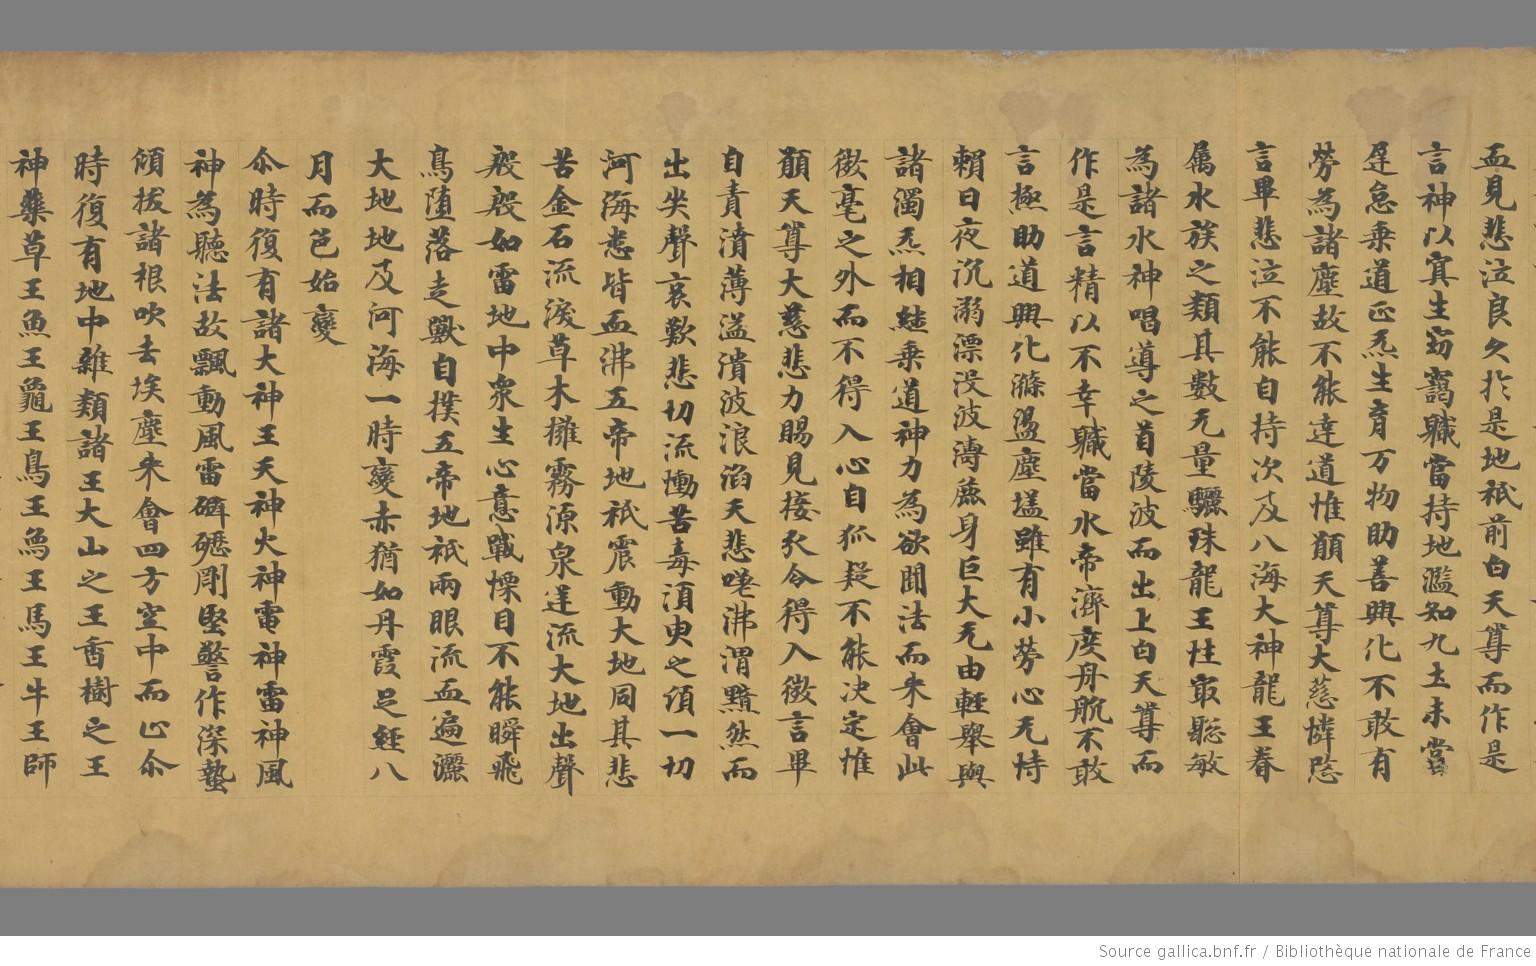 血見悲泣良久於是地祇前白天尊而作是
言神以冥生竊竊職當持地濫知九土未嘗
遅怠乗道正炁生育万物助善興化不敢有
勞為諸塵故不能達道惟願天尊大慈憐愍
言畢悲泣不能自持次及八海大神龍王眷
属水族之類其數无量驪珠龍王性寂聡敏
為諸水神唱導之首陵波而出上白天尊而
作是言精以不幸職當水帝濟度舟航不敢
言極助道興化滌盪塵 雖有小勞心无恃
賴日夜沉溺漂没波濤 身巨大无由輕舉與
諸濁炁相 乗道神力為欲聞法而来會此
微毫之外而不得入心自狐疑不能决定惟
願天尊大慈悲力賜見接引令得入微言畢
自責濆薄溢潰波浪滔天悲嘷沸渭黯然而
出哭聲哀歎悲切流慟苦毒須臾之頃一切
河海悉皆血沸五帝地祇震動大地同其悲
苦金石流液草木擁霧源泉逆流大地出聲
殷殷如雷地中衆生心意戰慄目不能瞬飛
鳥墮落走獸自撲五帝地祇兩眼流血遍灑
大地地及河海一時變赤猶如丹霞足經八
月而色始變
尒時復有諸大神王天神火神電神雷神風
神為聽法故飄動風雷礔礰剛堅警作深蟄
傾拔諸根吹去埃塵来會四方空中而止尒
時復有地中雜類諸王大山之王香樹之王
神藥草王魚王龜王鳥王 王馬王牛王師
Source gallica.bnf.fr / Bibliothèque nationale de France